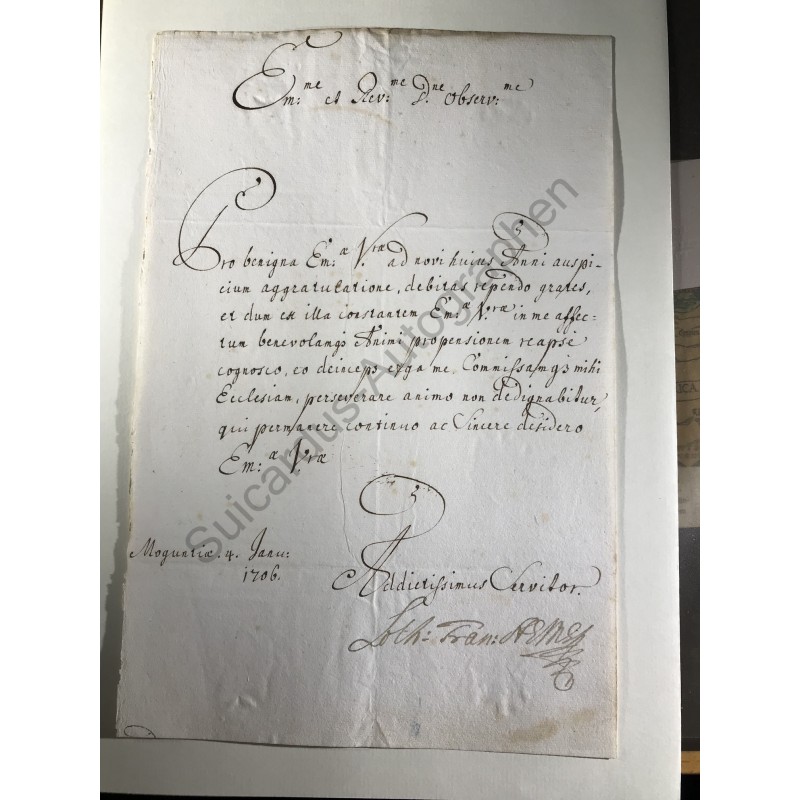 Em:me et Rev:me Dne Observ:me
Pro benigna Em:æ V:ræ ad novi huius Anni auspi-
cium aggratulatione, debitas rependo grates,
et dum ex illa constantem Em:æ V:ræ in me affec-
tum benevolamq3 Animi propensionem reapse
cognosco, eo deinceps erga me, Commissamq3 mihi
Ecclesiam, perseverare animo non dedignabitur,
qui permanere continuo ac Sincere desidero
Em:æ V:ræ
Moguntiæ. 4. Janu:
1706.
Addictissimus Servitor.
Loth: Fran: AEMEp
Suicardus-Autographen